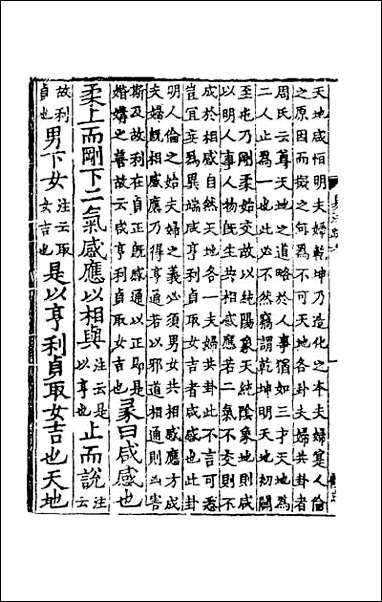 天地咸恒明夫婦乾坤乃造化之本夫婦寔人倫
之原因而擬之何為不可天地各卦夫婦共卦者
周氏云尊天地之道略於人事猶如三才天地為
二人止為一也此必不然竊謂乾坤明天地初闢
至屯乃剛柔始交故以純陽象天純陰象地則咸
以明人事人物既生共相感應若二氣不交則不
成於相感自然天地各一夫婦共卦此不言可悉
豈宜妄為異端咸亨利貞取女吉者咸感也此卦
明人倫之始夫婦之義必須男女共相感應方成
夫婦既相感應乃得亨通若以邪道相通則凶害
斯及故利在貞正既感通以正即是
婚媾之善故云咸亨利貞取女吉也
彖曰咸感也
柔上而剛下二氣感應以相與
注云是
以亨也
止而說
注云
故利
貞也
男下女
注云取
女吉也
是以亨利貞取女吉也天地